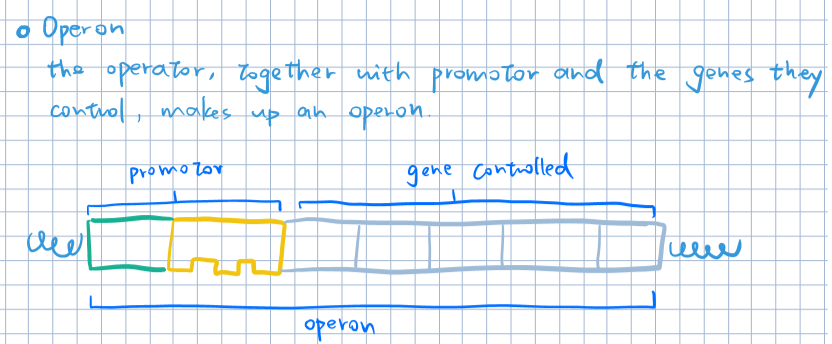 Operon
the operator, together with promotor and the genes they
control, makes up an operon.
promotor
gene controlled
operon